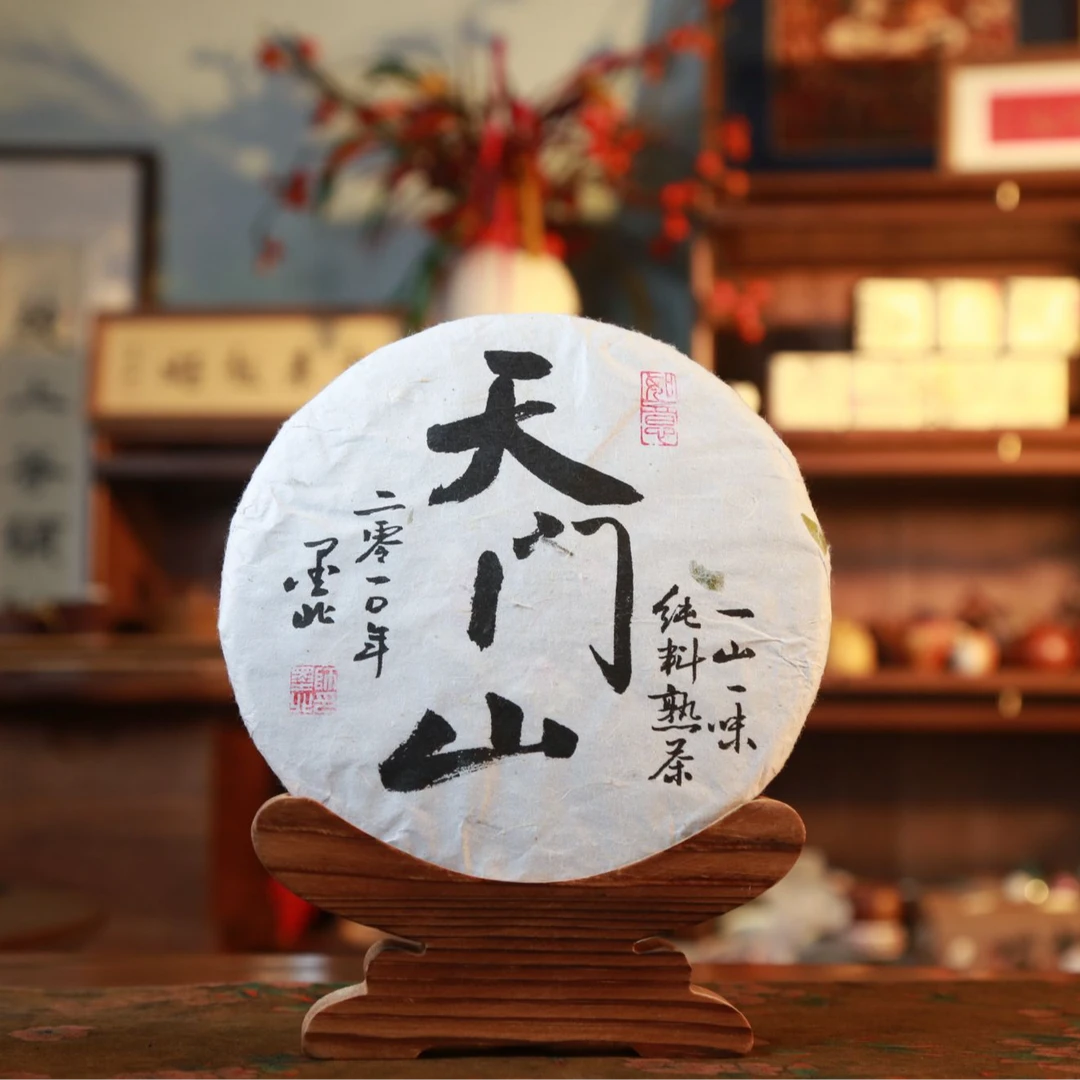 如意
一山一味
纯料熟茶
天门山
二零一０年
墨此